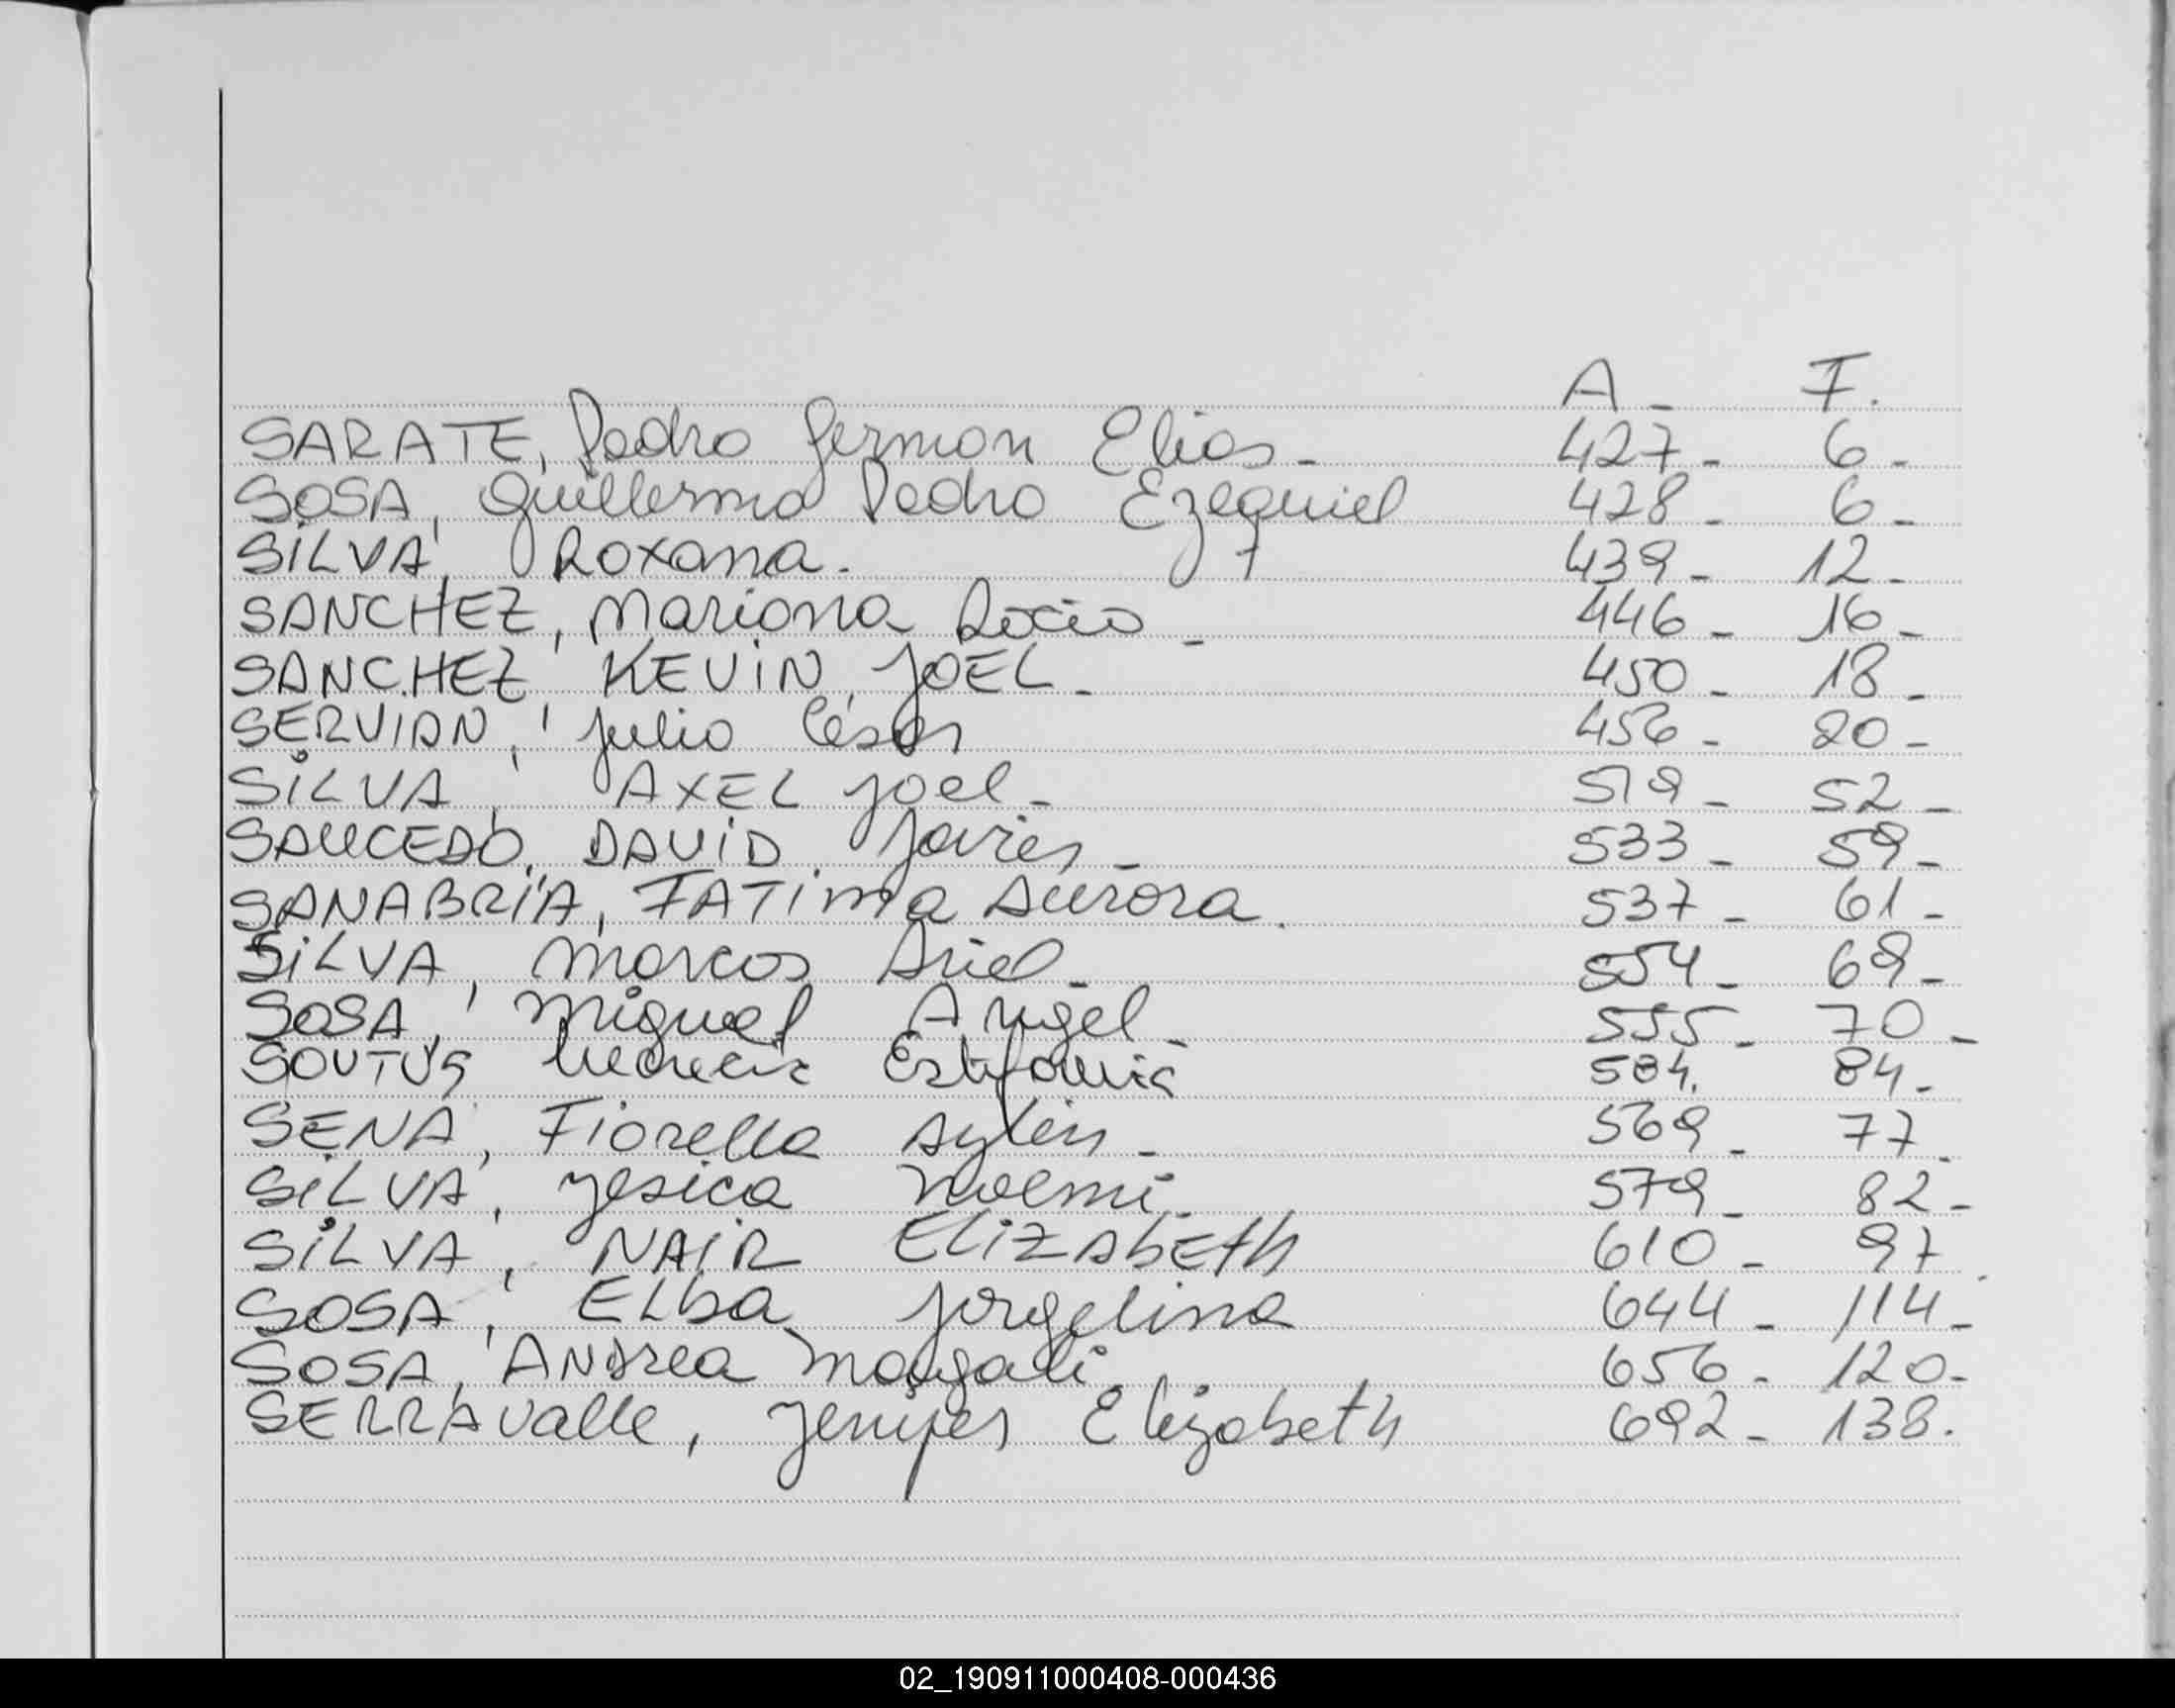 A - F.
SARATE, Pedro German Elias - 427 - 6 -
SOSA, Guillermo Pedro Ezequiel 428 - 6 -
SILVA, Roxana. 439 - 12 -
SANCHEZ, Mariana Rocio - 446 - 16 -
SANCHEZ, KEVIN JOEL - 450 - 18 -
SERVIAN, Julio César 456 - 20 -
SILVA, AXEL Joel - 519 - 52 -
SAUCEDO, DAVID Javier - 533 - 59 -
SANABRIA, FATIMA Aurora. 537 - 61 -
SILVA, Marcos Ariel - 554 - 69 -
SOSA, Miguel Angel - 555 - 70 -
Estefania 584. 84 -
SENA, Fiorella Aylén - 569 - 77 -
SILVA, Yesica Noemi - 579 - 82 -
SILVA, NAIR ELIZAbEth 610 - 97 -
SOSA, ELba Jorgelina 644 - 114 -
SOSA, ANdrea Magali. 656 - 120 -
SERRAvalle, Jenifer Elizabeth 692 - 138.
02_190911000408-000436